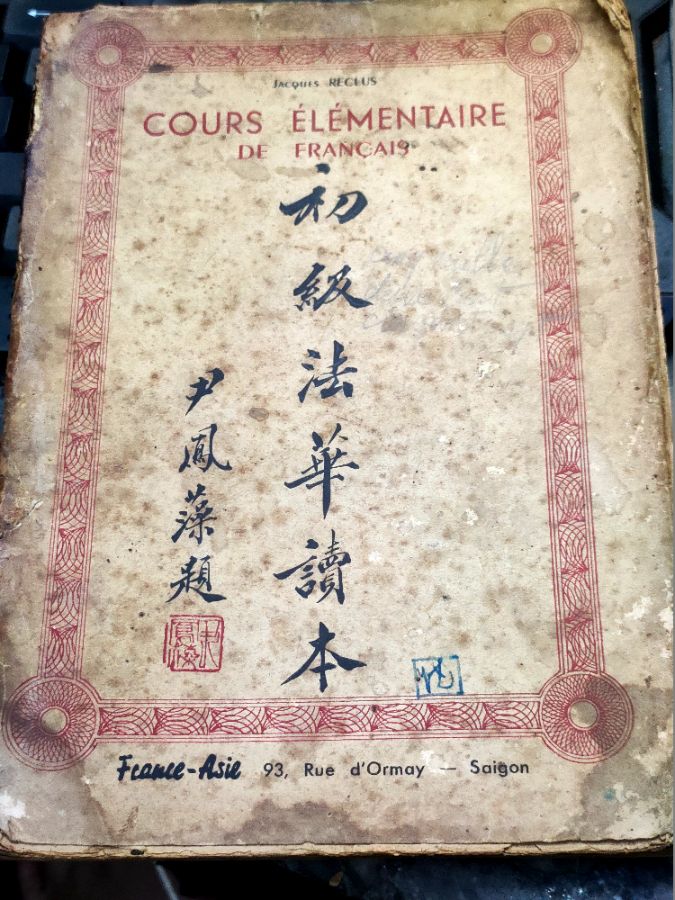 Jacques RECLUS
COURS ÉLÉMENTAIRE
DE FRANÇAIS
初級法華讀本
尹鳳藻題
France-Asie 93, Rue d'Ormay — Saigon